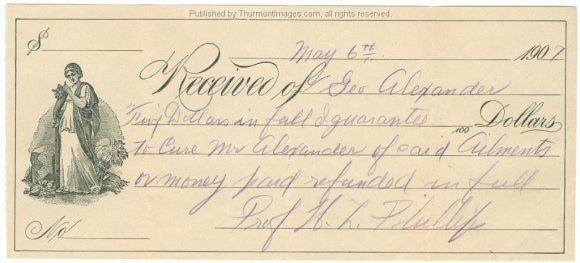 Published by ThurmontImages.com, all rights reserved.
$
May 6th 1907
Received of Geo Alexander
Dollars in full I guarantee 100 Dollars
to Cure Mr Alexander of said Ailments
or money paid refunded in full
Prof H. L. Phillip
No